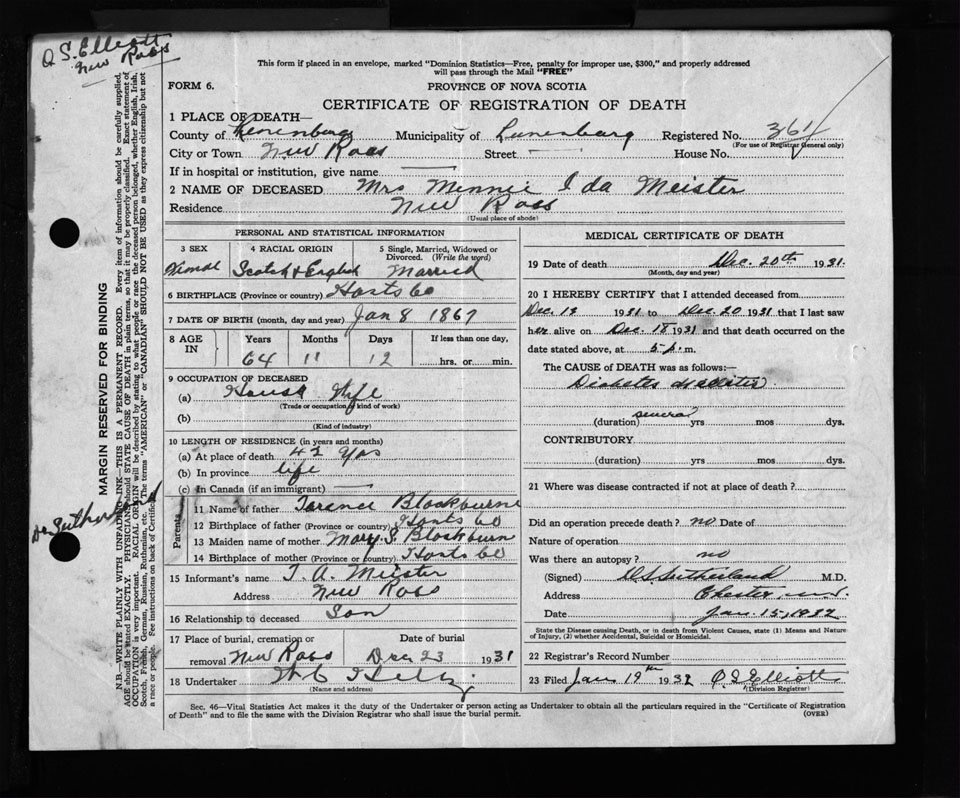 O. S. Elliott
New Ross
This form if placed in an envelope, marked "Dominion Statistics—Free, penalty for improper use, $300," and properly addressed
will pass through the Mail "FREE"
FORM 6.
PROVINCE OF NOVA SCOTIA
CERTIFICATE OF REGISTRATION OF DEATH
1 PLACE OF DEATH—
County of Lunenburg Municipality of Lunenburg Registered No. 361
(For use of Registrar General only)
City or Town New Ross Street — House No.
If in hospital or institution, give name —
2 NAME OF DECEASED Mrs Minnie Ida Meister
Residence New Ross
(Usual place of abode)
PERSONAL AND STATISTICAL INFORMATION
3 SEX 4 RACIAL ORIGIN 5 Single, Married, Widowed or
Divorced. (Write the word)
Femal Scotch & English Married
6 BIRTHPLACE (Province or country) Hants Co
7 DATE OF BIRTH (month, day and year) Jan 8 1867
8 AGE IN Years Months Days If less than one day,
64 11 12 hrs. or min.
9 OCCUPATION OF DECEASED
(a) House Wife
(Trade or occupation, kind of work)
(b)
(Kind of industry)
10 LENGTH OF RESIDENCE (in years and months)
(a) At place of death 42 yrs
(b) In province life
(c) In Canada (if an immigrant) —
Parents
11 Name of father Blackburne
12 Birthplace of father (Province or country) Hants Co
13 Maiden name of mother Mary S. Blackburn
14 Birthplace of mother (Province or country) Hants Co
15 Informant's name T. A. Meister
Address New Ross
16 Relationship to deceased Son
17 Place of burial, cremation or Date of burial
removal New Ross Dec 23 1931
18 Undertaker
(Name and address)
MEDICAL CERTIFICATE OF DEATH
19 Date of death Dec. 20th 1931.
(Month, day and year)
20 I HEREBY CERTIFY that I attended deceased from
Dec. 12 1931 to Dec. 20 1931 that I last saw
her alive on Dec. 18 1931 and that death occurred on the
date stated above, at 5 p. m.
The CAUSE of DEATH was as follows:—
Diabetes mellitus
(duration) several yrs mos dys.
CONTRIBUTORY
(duration) yrs mos dys.
21 Where was disease contracted if not at place of death?
Did an operation precede death? no Date of
Nature of operation
Was there an autopsy? no
(Signed) D S Sutherland M.D.
Address Chester
Date Jan. 15, 1932
State the Disease causing Death, or in death from Violent Causes, state (1) Means and Nature
of Injury, (2) whether Accidental, Suicidal or Homicidal.
22 Registrar's Record Number
23 Filed Jan 19th 1932 O S Elliott
(Division Registrar)
Sec. 46—Vital Statistics Act makes it the duty of the Undertaker or person acting as Undertaker to obtain all the particulars required in the "Certificate of Registration
of Death" and to file the same with the Division Registrar who shall issue the burial permit.
(OVER)
MARGIN RESERVED FOR BINDING
N.B.—WRITE PLAINLY WITH UNFADING INK—THIS IS A PERMANENT RECORD. Every item of information should be carefully supplied.
AGE should be stated EXACTLY. PHYSICIANS should STATE CAUSE OF DEATH in plain terms, so that it may be properly classified. Exact statement of
OCCUPATION is very important. RACIAL ORIGIN will be described by stating to what people or race the deceased person belonged, whether English, Irish,
Scotch, French, German, Russian, Ruthenian, etc. The terms "AMERICAN" or "CANADIAN" SHOULD NOT BE USED as they express citizenship but not
a race or people. See instructions on back of Certificate.
Dr. Sutherland